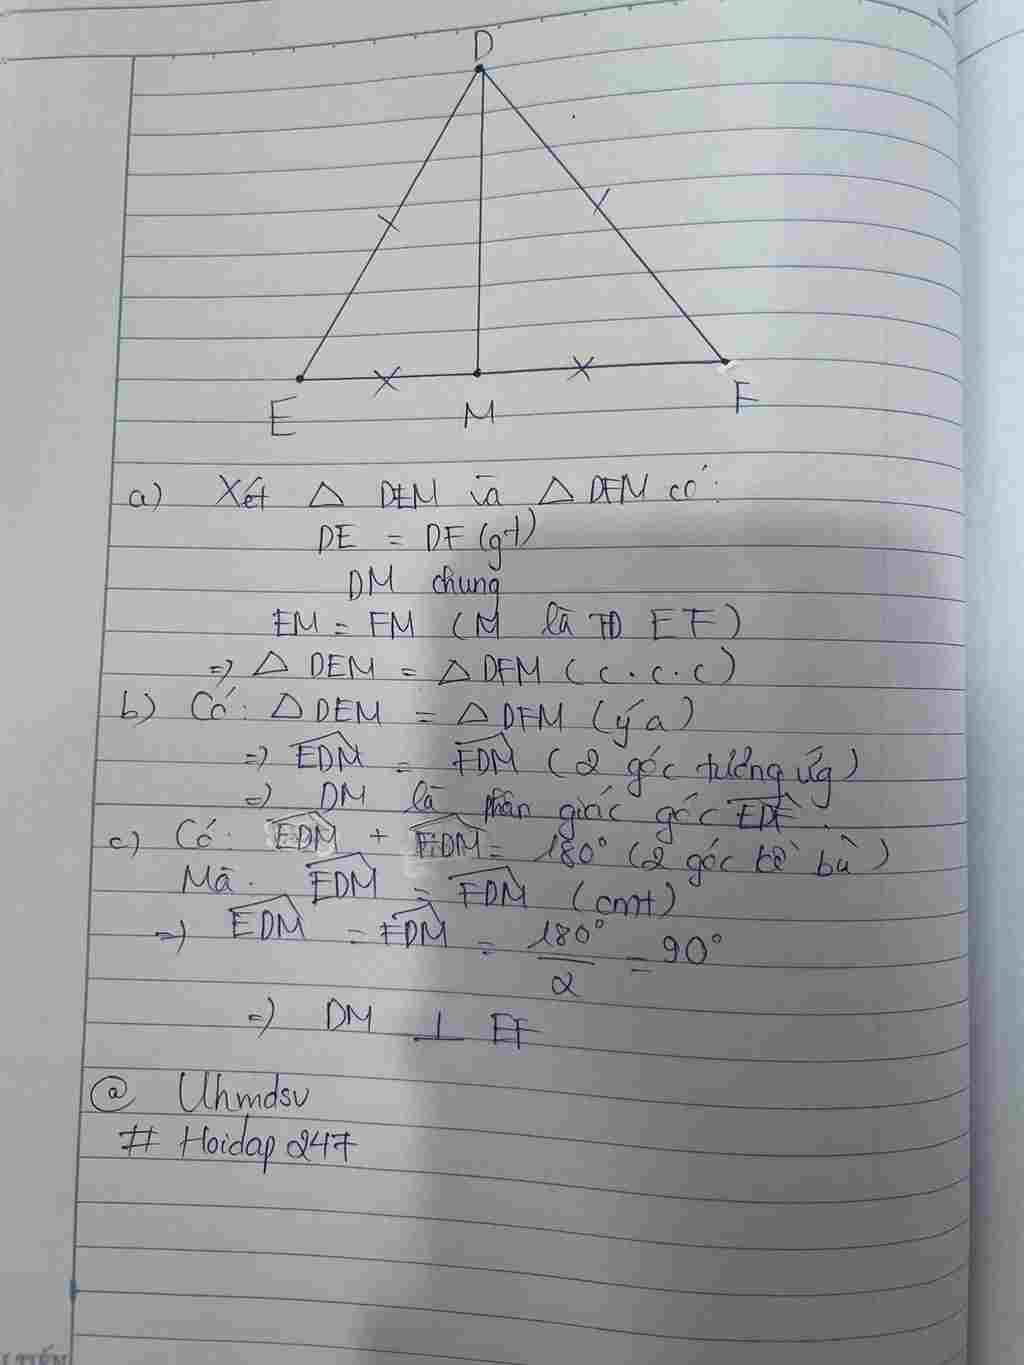 D
E M F
a) Xét △ DEM và △ DFM có:
DE = DF (gt)
DM chung
EM = FM (M là TĐ EF)
=> △ DEM = △ DFM (c.c.c)
b) Có: △ DEM = △ DFM (ý a)
=> EDM = FDM (2 góc tương ứg)
=> DM là phân giác góc EDF.
c) Có: EDM + FDM = 180° (2 góc kề bù)
Mà. EDM = FDM (cmt)
=> EDM = FDM = 180°/2 = 90°
=> DM ⊥ EF
@ Uhmdsv
# Hoidap 247